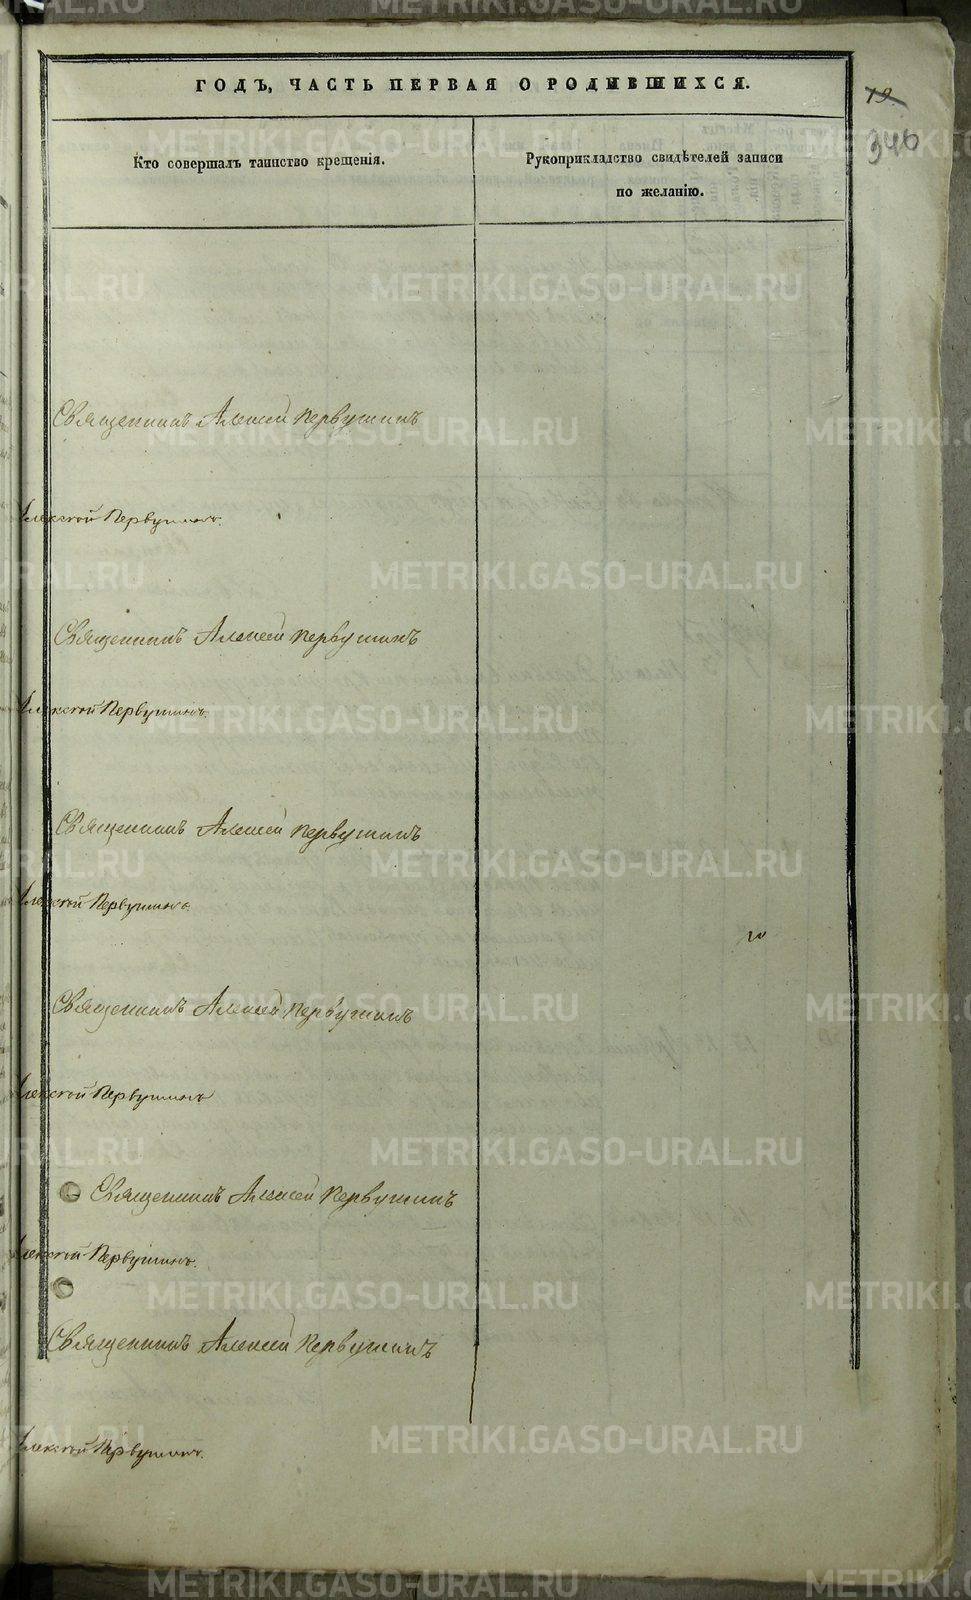 ГОДЪ, ЧАСТЬ ПЕРВАЯ О РОДИВШИХСЯ.
19.
346
Кто совершалъ таинство крещенія.
Рукоприкладство свидѣтелей записи
по желанію.
Священникъ Алексей Первушинъ
Алексѣй Первушинъ.
Священникъ Алексей Первушинъ
Алексѣй Первушинъ.
Священникъ Алексей Первушинъ
Алексѣй Первушинъ.
Священникъ Алексей Первушинъ
Алексѣй Первушинъ
Священникъ Алексей Первушинъ
Алексѣй Первушинъ.
Священникъ Алексей Первушинъ
Алексѣй Первушинъ.
METRIKI.GASO-URAL.RU